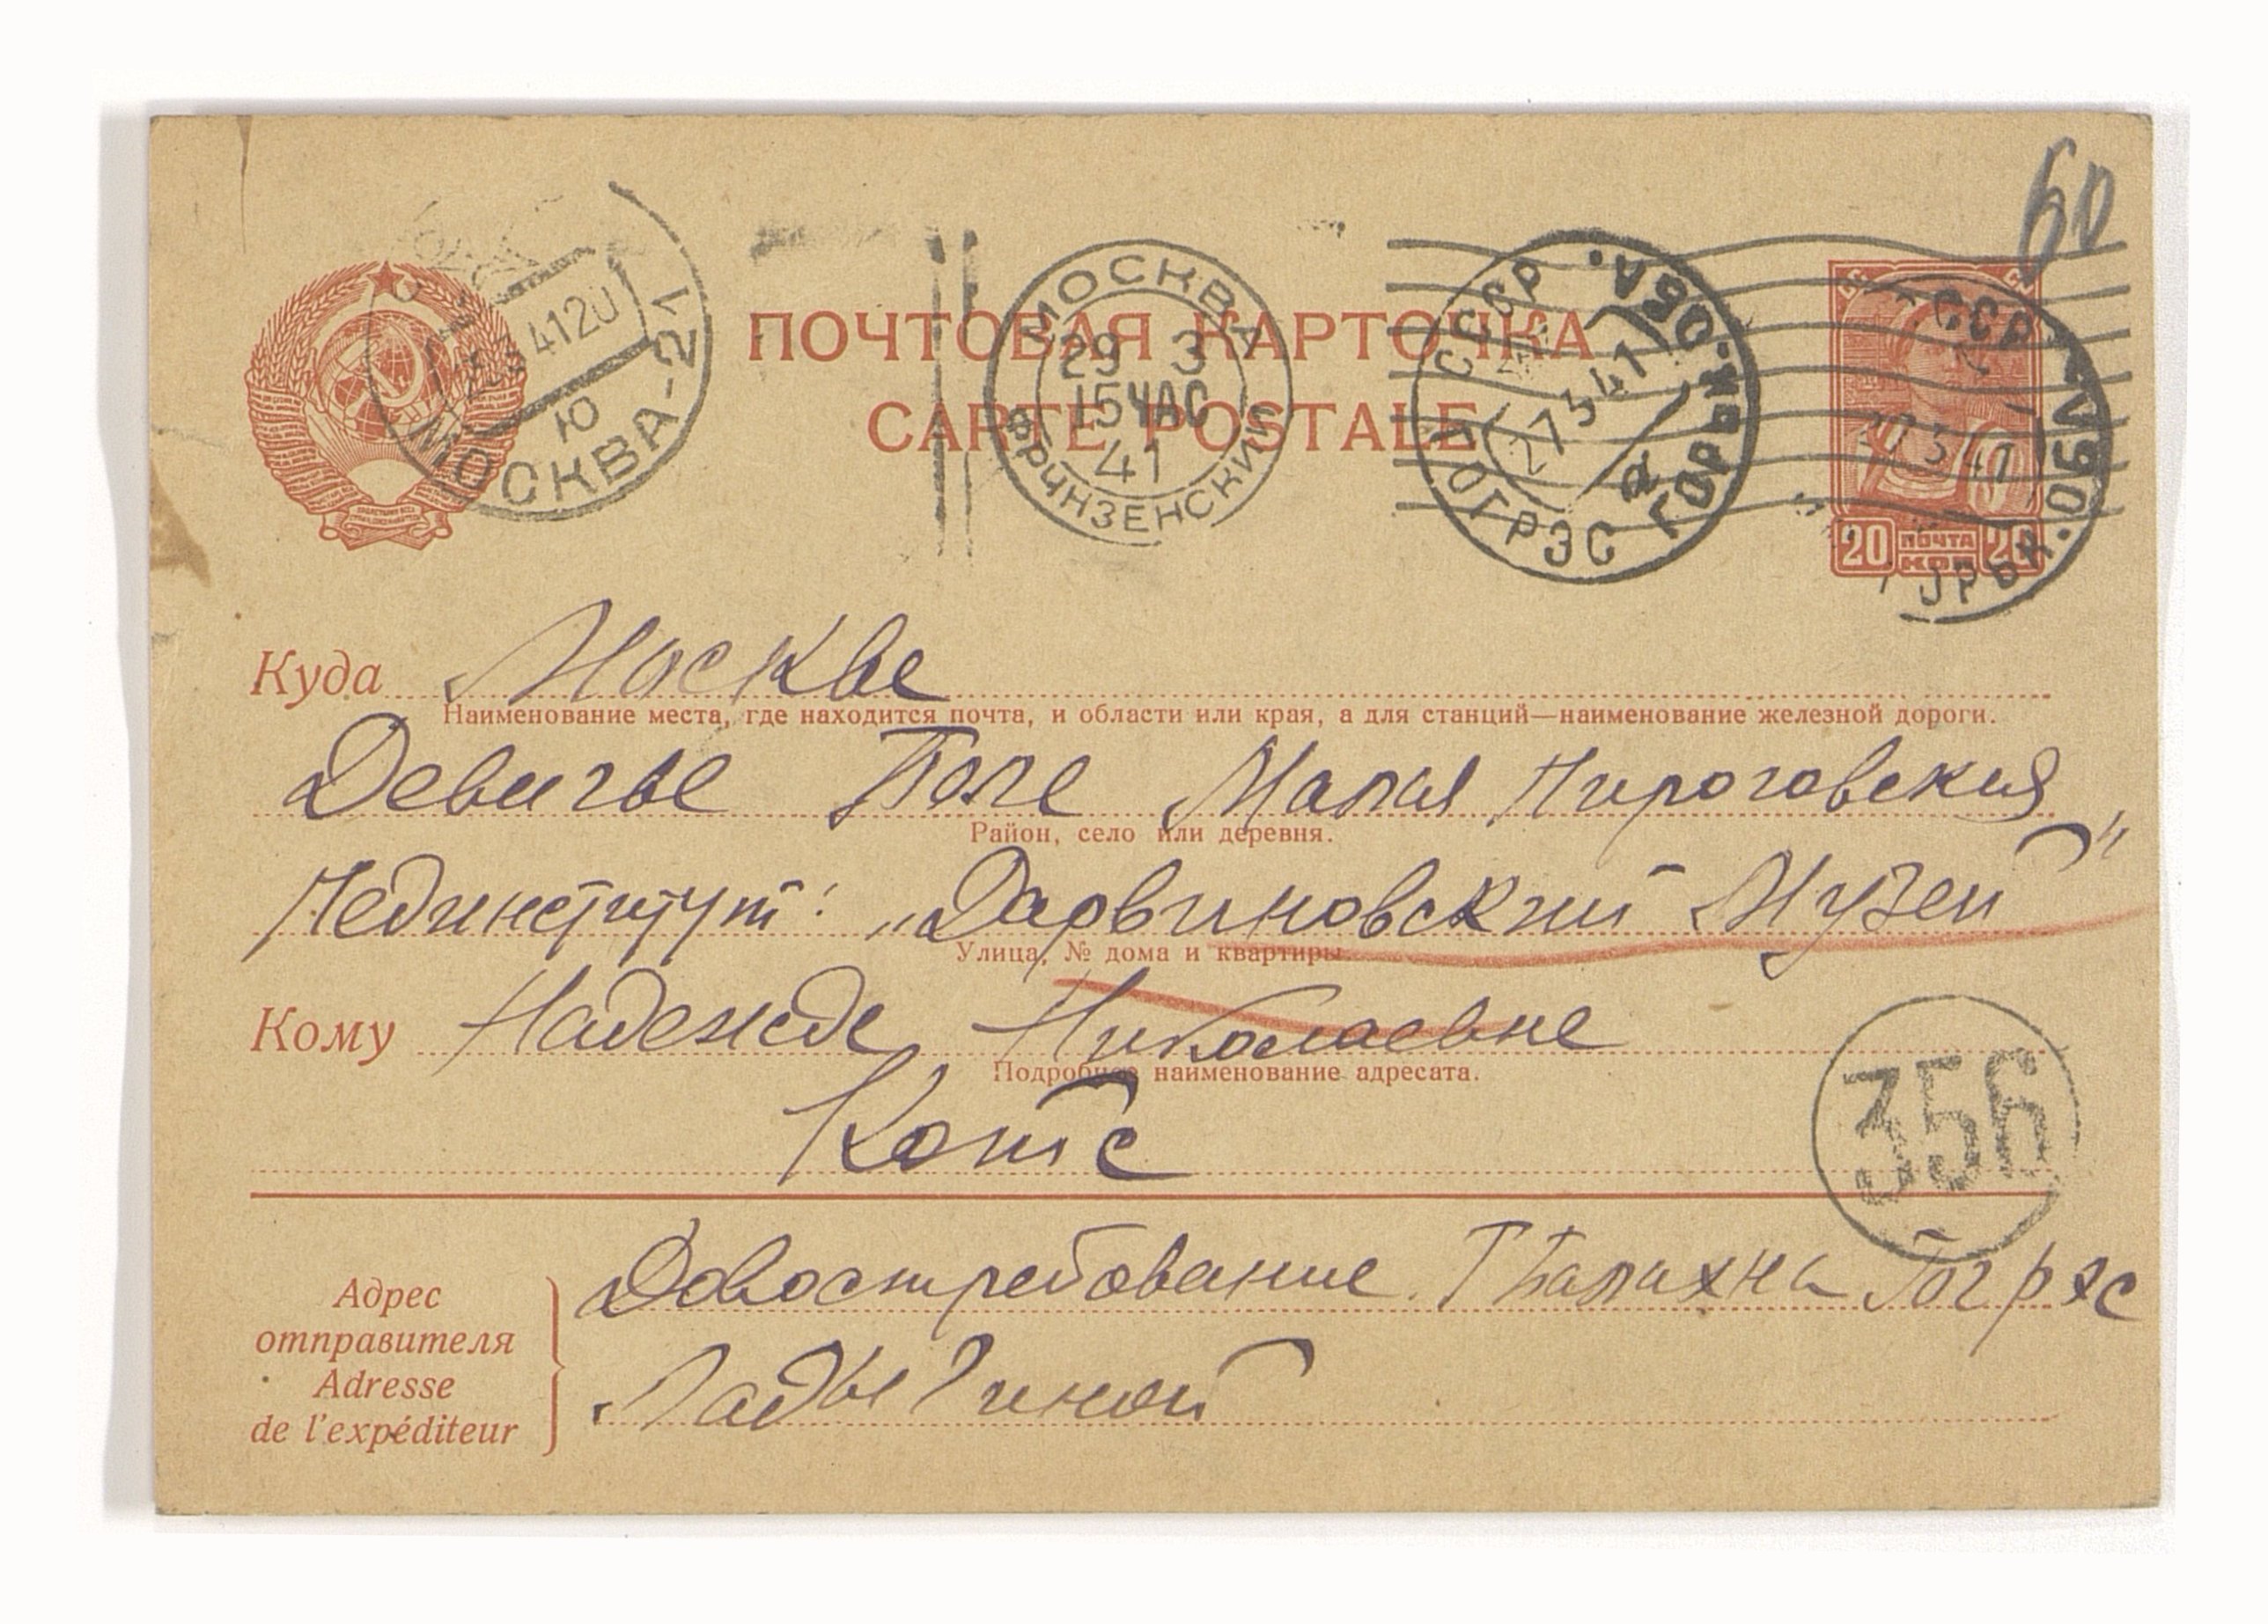 60
МОСКВА-21
41 20
Ю
МОСКВА
29 3
15 ЧАС
41
ФРУНЗЕНСКИЙ
СССР
ГОРЬК. ОБЛ.
27 3 41
а
ОГРЭС
СССР
27 3 41
ГОРЬК. ОБЛ.
20 ПОЧТА 20
КОП
ПОЧТОВАЯ КАРТОЧКА
CARTE POSTALE
Куда Москве
Наименование места, где находится почта, и области или края, а для станций—наименование железной дороги.
Девичье Поле Малая Пироговская
Район, село или деревня.
Пединститут: „Дарвиновский Музей"
Улица, № дома и квартиры
Кому Надежде Николаевне
Подробное наименование адресата.
Котс
356
Адрес
отправителя
Adresse
de l'expéditeur
Довостребование. Г Балахна Гогрэс
Ладыгиной